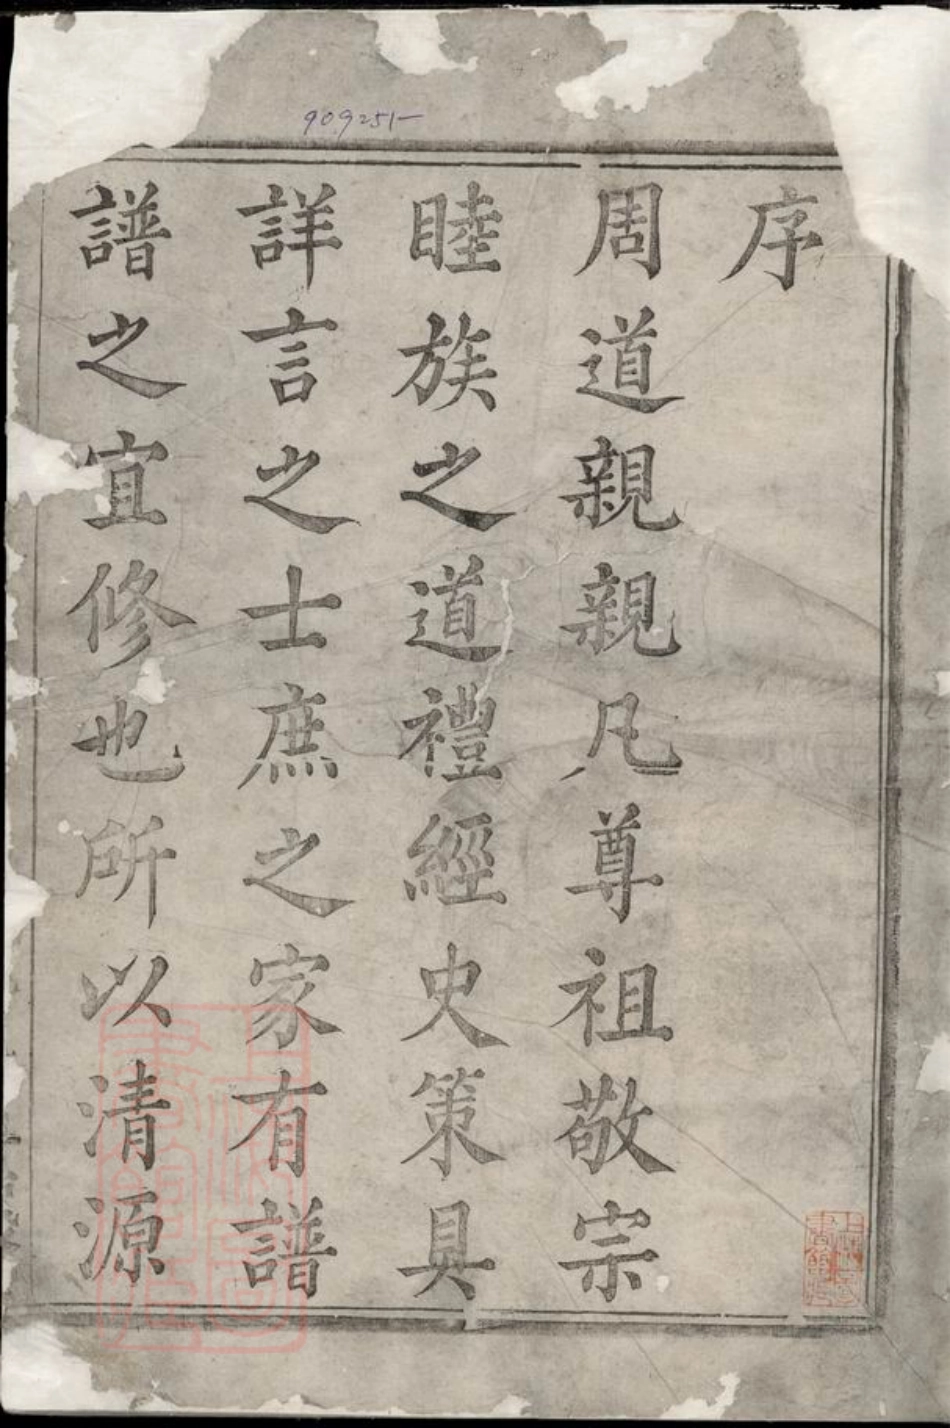 909251
序
周道親親凡尊祖敬宗
睦族之道禮經史策具
詳言之士庶之家有譜
譜之宜修也所以清源